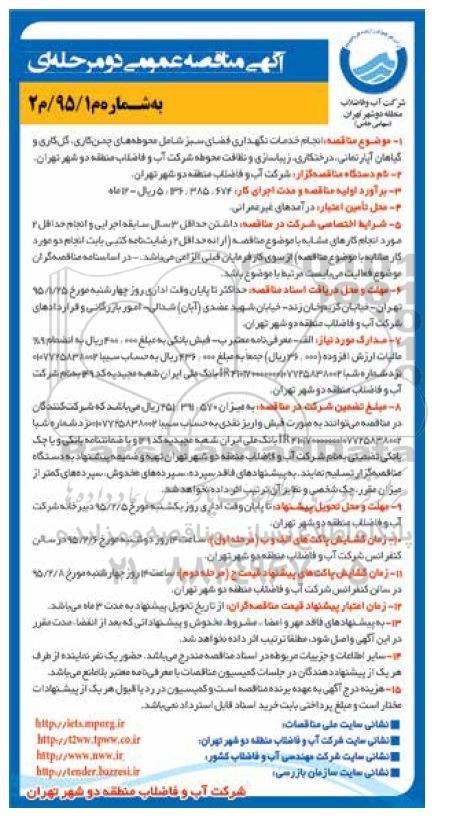 آگهی مناقصه عمومی دو مرحله‌ای
به شماره م۹۵/۱/م۲
شرکت آب و فاضلاب
منطقه دو شهر تهران
(سهامی خاص)
۱- موضوع مناقصه: انجام خدمات نگهداری فضای سبز شامل محوطه‌های چمن‌کاری، گل‌کاری و
گیاهان آپارتمانی، درختکاری، زیباسازی و نظافت محوطه شرکت آب و فاضلاب منطقه دو شهر تهران.
۲- نام دستگاه مناقصه‌گزار: شرکت آب و فاضلاب منطقه دو شهر تهران.
۳- برآورد اولیه مناقصه و مدت اجرای کار: ۵,۱۳۶,۳۸۵,۶۷۴ ریال - ۱۲ ماه
۴- محل تأمین اعتبار: درآمدهای غیرعمرانی.
۵- شرایط اختصاصی شرکت در مناقصه: داشتن حداقل ۳ سال سابقه اجرایی و انجام حداقل ۲
مورد انجام کارهای مشابه با موضوع مناقصه (ارائه حداقل ۲ رضایت‌نامه کتبی بابت انجام دو مورد
کار مشابه با موضوع مناقصه) از سوی کارفرمایان قبلی الزامی می‌باشد. - در اساسنامه مناقصه‌گران
موضوع فعالیت می‌بایست مرتبط با موضوع باشد.
۶- مهلت و محل دریافت اسناد مناقصه: حداکثر تا پایان وقت اداری روز چهارشنبه مورخ ۹۵/۱/۲۵
تهران - خیابان کریم‌خان زند - خیابان شهید عضدی (آبان) شمالی - امور بازرگانی و قراردادهای
شرکت آب و فاضلاب منطقه دو شهر تهران.
۷- مدارک مورد نیاز: الف- معرفی‌نامه معتبر ب- فیش بانکی به مبلغ ۴۰۰,۰۰۰ ریال به انضمام ۹٪
مالیات ارزش افزوده (۳۶,۰۰۰ ریال) جمعا به مبلغ ۴۳۶,۰۰۰ ریال به حساب سیبا ۰۱۰۷۷۲۵۸۳۸۰۰۲
نزد شماره شبا بانک ملی ایران شعبه مجیدیه کد ۱۴۹ به نام شرکت
آب و فاضلاب منطقه دو شهر تهران.
۸- مبلغ تضمین شرکت در مناقصه: به میزان ۲۵۱,۳۹۱,۵۷۰ ریال می‌باشد که شرکت‌کنندگان
در مناقصه می‌توانند به صورت فیش واریز نقدی به حساب سیبا ۰۱۰۷۷۲۵۸۳۸۰۰۲ نزد شماره شبا
بانک ملی ایران شعبه مجیدیه کد ۱۴۹ و یا ضمانتنامه بانکی و یا چک
بانکی تضمینی به نام شرکت آب و فاضلاب منطقه دو شهر تهران تهیه و ضمیمه پیشنهاد به دستگاه
مناقصه‌گزار تسلیم نمایند. به پیشنهادهای فاقد سپرده، سپرده‌های مخدوش، سپرده‌های کمتر از
میزان مقرر، چک شخصی و نظایر آن ترتیب اثر داده نخواهد شد.
۹- مهلت و محل تحویل پیشنهاد: تا پایان وقت اداری روز یکشنبه مورخ ۹۵/۲/۵ دبیرخانه شرکت
آب و فاضلاب منطقه دو شهر تهران.
۱۰- زمان گشایش پاکت‌های الف و ب (مرحله اول): ساعت ۱۴ روز دوشنبه مورخ ۹۵/۲/۶ در سالن
کنفرانس شرکت آب و فاضلاب منطقه دو شهر تهران.
۱۱- زمان گشایش پاکت‌های پیشنهاد قیمت ج (مرحله دوم): ساعت ۱۴ روز چهارشنبه مورخ ۹۵/۲/۸
در سالن کنفرانس شرکت آب و فاضلاب منطقه دو شهر تهران.
۱۲- زمان اعتبار پیشنهاد قیمت مناقصه‌گران: از تاریخ تحویل پیشنهاد به مدت ۳ ماه می‌باشد.
۱۳- به پیشنهادهای فاقد مهر و امضا، مشروط، مخدوش و پیشنهاداتی که بعد از انقضا، مدت مقرر
در این آگهی واصل شود، مطلقا ترتیب اثر داده نخواهد شد.
۱۴- سایر اطلاعات و جزییات مربوطه در اسناد مناقصه مندرج می‌باشد. حضور یک نفر نماینده از طرف
هر یک از پیشنهاددهندگان در جلسات کمیسیون مناقصات با معرفی‌نامه معتبر بلامانع می‌باشد.
۱۵- هزینه درج آگهی به عهده برنده مناقصه است و کمیسیون در رد یا قبول هر یک از پیشنهادات
مختار است و مبلغ پرداختی بابت خرید اسناد قابل استرداد نمی‌باشد.
نشانی سایت ملی مناقصات: http://iets.mporg.ir
نشانی سایت شرکت آب و فاضلاب منطقه دو شهر تهران: http://t2ww.tpww.co.ir
نشانی سایت شرکت مهندسی آب و فاضلاب کشور: http://www.nww.ir
نشانی سایت سازمان بازرسی: http://tender.bazresi.ir
شرکت آب و فاضلاب منطقه دو شهر تهران